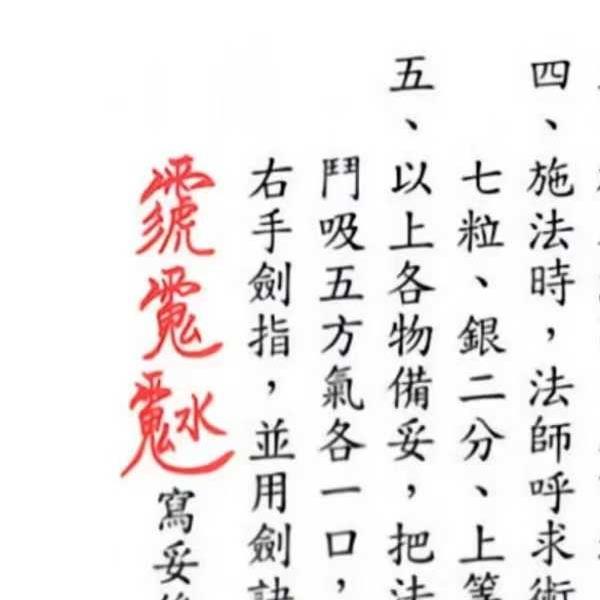 四、施法時，法師呼求術
七粒、銀二分、上等
五、以上各物備妥，把法
鬥吸五方氣各一口，
右手劍指，並用劍訣
寫妥後